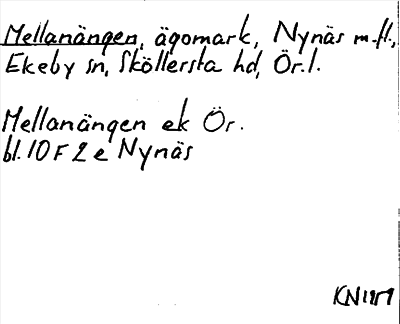 Mellanängen, ägomark, Nynäs m.fl.,
Ekeby sn, Sköllersta hd, Ör.l.
Mellanängen ek Ör.
bl. 10 F 2 e Nynäs